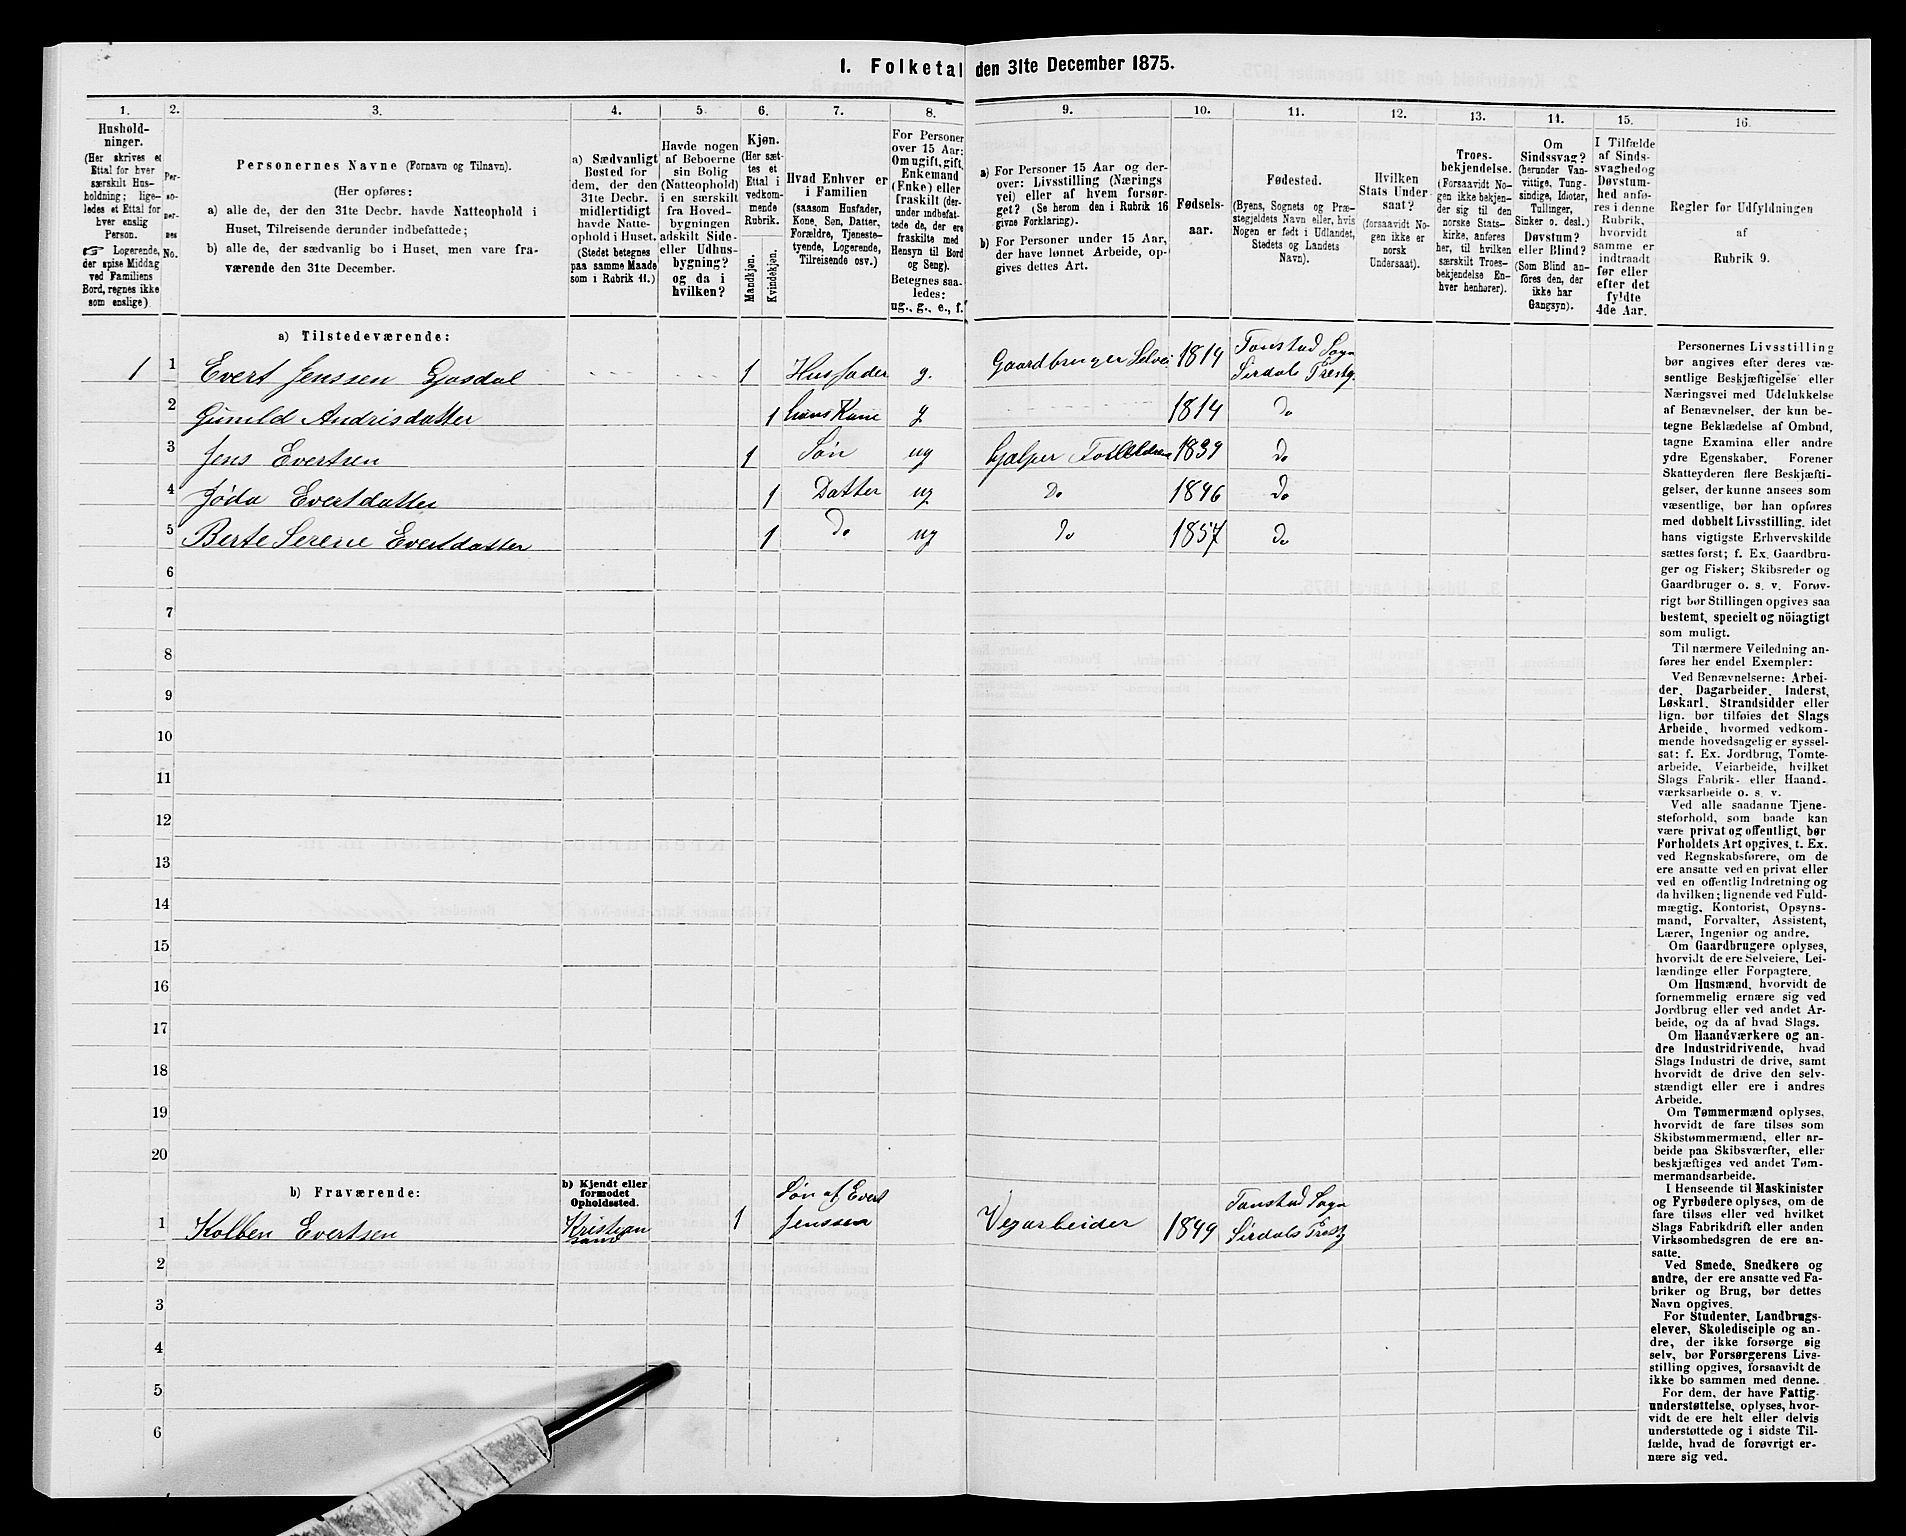 I. Folketal den 31te December 1875.
1.
Hushold-
ninger.
(Her skrives et
Ettal for hver
særskilt Hus-
holdning; lige-
ledes et Ettal for
hver enslig
Person.
☞ Logerende,
der spise Middag
ved Familiens
Bord, regnes ikke
som enslige).
2.
Per-
so-
ner-
nes
No.
3.
Personernes Navne (Fornavn og Tilnavn).
(Her opføres:
a) alle de, der den 31te Decbr. havde Natteophold i
Huset, Tilreisende derunder indbefattede;
b) alle de, der sædvanlig bo i Huset, men vare fra-
værende den 31te December.
4.
a) Sædvanligt
Bosted for
dem, der den
31te Decbr.
midlertidigt
havde Natte-
ophold i Huset.
(Stedet betegnes
paa samme Maade
som i Rubrik 11.)
5.
Havde nogen
af Beboerne
sin Bolig
(Natteophold)
i en særskilt
fra Hoved-
bygningen
adskilt Side-
eller Udhus-
bygning?
og da i
hvilken?
6.
Kjøn.
(Her sæt-
tes et
Ettal i
vedkom-
mende
Rubrik.
Mandkjøn.
Kvindekjøn.
7.
Hvad Enhver er
i Familien
(saasom Husfader,
Kone, Søn, Datter,
Forældre, Tjeneste-
tyende, Logerende,
Tilreisende osv.)
8.
For Personer
over 15 Aar:
Om ugift, gift,
Enkemand
(Enke) eller
fraskilt (der-
under indbefat-
tede de, der ere
fraskilte med
Hensyn til Bord
og Seng).
Betegnes saa-
ledes:
ug., g., e., f.
9.
a) For Personer 15 Aar og der-
over: Livsstilling (Nærings-
vei) eller af hvem forsør-
get? (Se herom den i Rubrik 16
givne Forklaring).
b) For Personer under 15 Aar,
der have lønnet Arbeide, op-
gives dettes Art.
10.
Fødsels-
aar.
11.
Fødested.
(Byens, Sognets og Præ-
stegjeldets Navn eller, hvis
Nogen er født i Udlandet,
Stedets og Landets
Navn).
12.
Hvilken
Stats Under-
saat?
(forsaavidt No-
gen ikke er
norsk
Undersaat).
13.
Troes-
bekjendelse.
(Forsaavidt No-
gen ikke bekjen-
der sig til den
norske Stats-
kirke, anføres
her, til hvilken
særskilt Troes-
bekjendelse En-
hver henhører).
14.
Om
Sindssvag?
(herunder Van-
vittige, Tung-
sindige, Idioter,
Tullinger,
Sinker o. desl.)
Døvstum?
eller Blind?
(Som Blind an-
føres den, der
ikke har
Gangsyn).
15.
I Tilfælde
af Sinds-
svaghed og
Døvstum-
hed anfø-
res i denne
Rubrik,
hvorvidt
samme er
indtraadt
før eller
efter det
fyldte
4de Aar.
16.
Regler for Udfyldningen
af
Rubrik 9.
a) Tilstedeværende:
1 1 Evert Jenssen Gjosdal 1 Husfader g. Gaardbruger Selvei 1814 Tonstad Sogn
Sirdals Prestg.
2 Gunild Andrisdatter 1 hans Kone g 1814 do
3 Jens Evertsen 1 Søn ug hjælper Forældrene 1839 do
4 Jøda Evertdatter 1 Datter ug Do 1846 do
5 Berte Serene Evertdatter 1 do ug Do 1857 do
6
7
8
9
10
11
12
13
14
15
16
17
18
19
20
b) Fraværende:
b) Kjendt eller
formodet
Opholdssted.
1 Kolben Evertsen Kristian
sand 1 Søn af Evert
Jenssen Vejarbeider 1849 Tonstad Sogn
Sirdals Prestg
2
3
4
5
6
Personernes Livsstilling
bør angives efter deres væ-
sentlige Beskjæftigelse eller
Næringsvei med Udelukkelse
af Benævnelser, der kun be-
tegne Beklædelse af Ombud,
tagne Examina eller andre
ydre Egenskaber. Forener
Skatteyderen flere Beskjæfti-
gelser, der kunne ansees som
væsentlige, bør han opføres
med dobbelt Livsstilling, idet
hans vigtigste Erhvervskilde
sættes først; f. Ex. Gaardbru-
ger og Fisker; Skibsreder og
Gaardbruger o. s. v. Forøv-
rigt bør Stillingen opgives saa
bestemt, specielt og nöiagtigt
som muligt.
Til nærmere Veiledning an-
føres her endel Exempler:
Ved Benævnelserne: Arbei-
der, Dagarbeider, Inderst,
Løskarl, Strandsidder eller
lign. bør tilføies det Slags
Arbeide, hvormed vedkom-
mende hovedsagelig er syssel-
sat: f. Ex. Jordbrug, Tomte-
arbeide, Veiarbeide, hvilket
Slags Fabrik- eller Haand-
værksarbeide o. s. v.
Ved alle saadanne Tjene-
steforhold, som baade kan
være privat og offentligt, bør
Forholdets Art opgives, t. Ex.
ved Regnskabsførere, om de
ere ansatte ved en privat eller
ved en offentlig Indretning og
da hvilken; lignende ved Fuld-
mægtig, Kontorist, Opsyns-
mand, Forvalter, Assistent,
Lærer, Ingeniør og andre.
Om Gaardbrugere oplyses,
hvorvidt de ere Selveiere, Lei-
lændinge eller Forpagtere.
Om Husmænd, hvorvidt de
fornemmelig ernære sig ved
Jordbrug eller ved andet Ar-
beide, og da af hvad Slags.
Om Haandværkere og an-
dre Industridrivende, hvad
Slags Industri de drive, samt
hvorvidt de drive den selv-
stændigt eller ere i andres
Arbeide.
Om Tømmermænd oplyses,
hvorvidt de fare tilsøs som
Skibstømmermænd, eller ar-
beide paa Skibsværfter, eller
beskjæftiges ved andet Tøm-
mermandsarbeide.
I Henseende til Maskinister
og Fyrbødere oplyses, om de
fare tilsøs eller ved hvilket
Slags Fabrikdrift eller anden
Virksomhedsgren de ere an-
satte.
Ved Smede, Snedkere og
andre, der ere ansatte ved Fa-
briker og Brug, bør dettes
Navn opgives.
For Studenter, Landbrugs-
elever, Skoledisciple og an-
dre, der ikke forsørge sig
selv, bør Forsørgerens Livs-
stilling opgives, forsaavidt de
ikke bo sammen med denne.
For dem, der have Fattig-
understøttelse, oplyses, hvor-
vidt de ere helt eller delvis
understøttede og i sidste Til-
fælde, hvad de forøvrigt er-
nære sig ved.